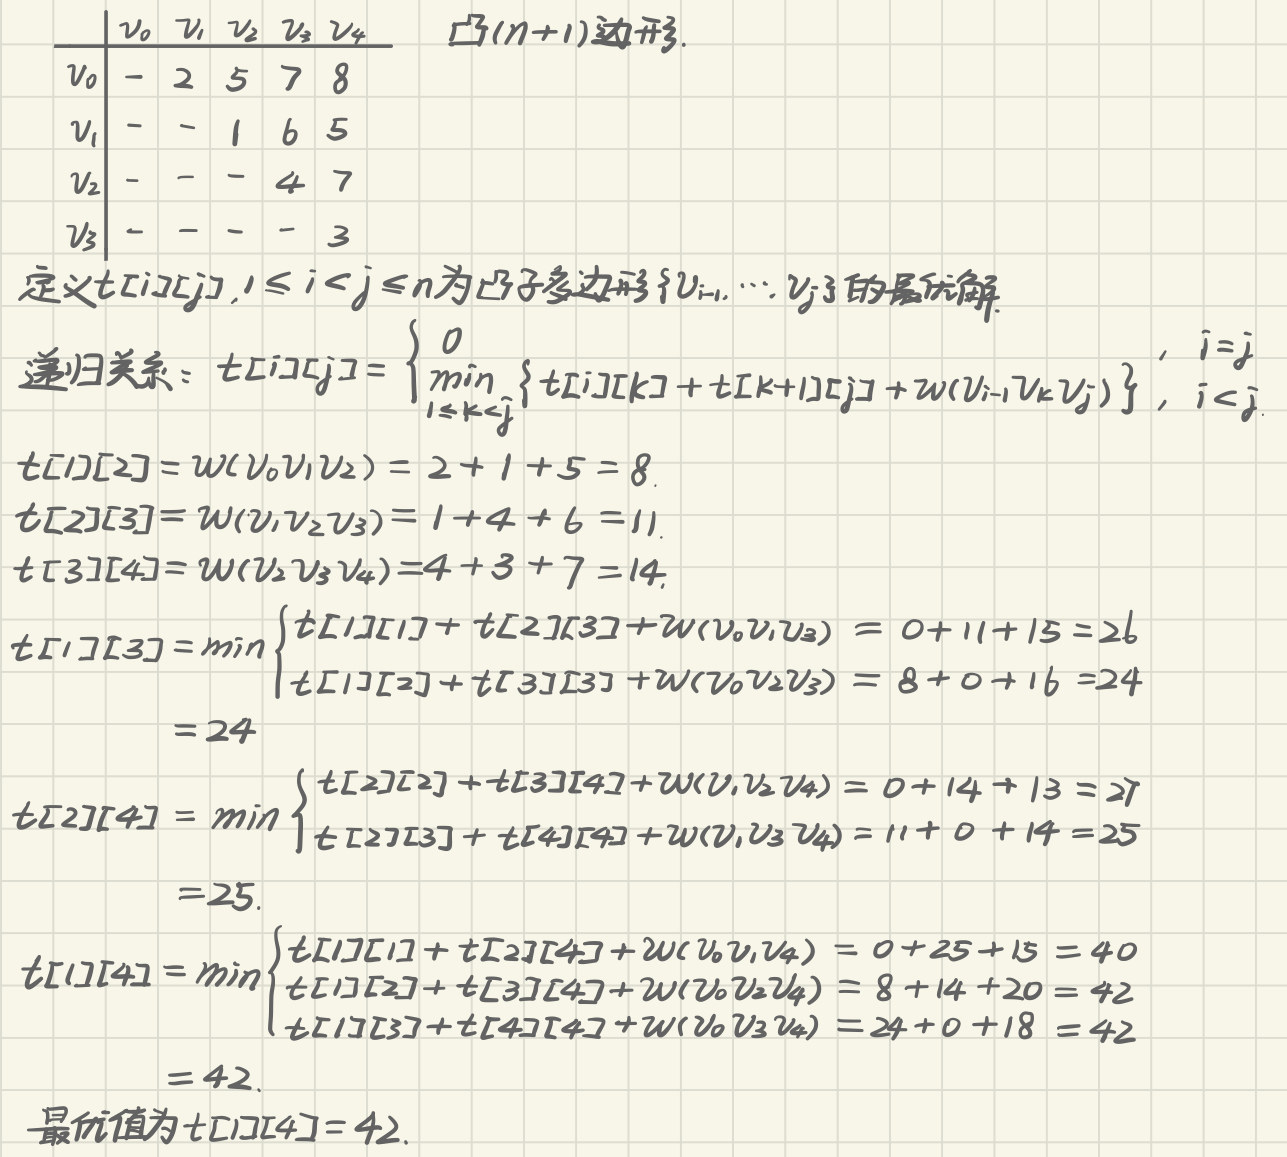 v₀ v₁ v₂ v₃ v₄ 凸(n+1)边形.
v₀ - 2 5 7 8
v₁ - - 1 6 5
v₂ - - - 4 7
v₃ - - - - 3
定义t[i][j],1≤i<j≤n为凸子多边形{v_{i-1}, … v_j}的最优解.
递归关系: t[i][j] = { 0 , i=j
min_{1≤k<j} {t[i][k] + t[k+1][j] + w(v_{i-1}v_kv_j)} , i<j.
t[1][2] = w(v₀v₁v₂) = 2+1+5 = 8.
t[2][3] = w(v₁v₂v₃) = 1+4+6 = 11.
t[3][4] = w(v₂v₃v₄) = 4+3+7 = 14.
t[1][3] = min { t[1][1] + t[2][3] + w(v₀v₁v₃) = 0+11+15 = 26
t[1][2] + t[3][3] + w(v₀v₂v₃) = 8+0+16 = 24
= 24
t[2][4] = min { t[2][2] + t[3][4] + w(v₁v₂v₄) = 0+14+13 = 27
t[2][3] + t[4][4] + w(v₁v₃v₄) = 11+0+14 = 25
= 25.
t[1][4] = min { t[1][1] + t[2][4] + w(v₀v₁v₄) = 0+25+15 = 40
t[1][2] + t[3][4] + w(v₀v₂v₄) = 8+14+20 = 42
t[1][3] + t[4][4] + w(v₀v₃v₄) = 24+0+18 = 42
= 42.
最优值为t[1][4] = 42.